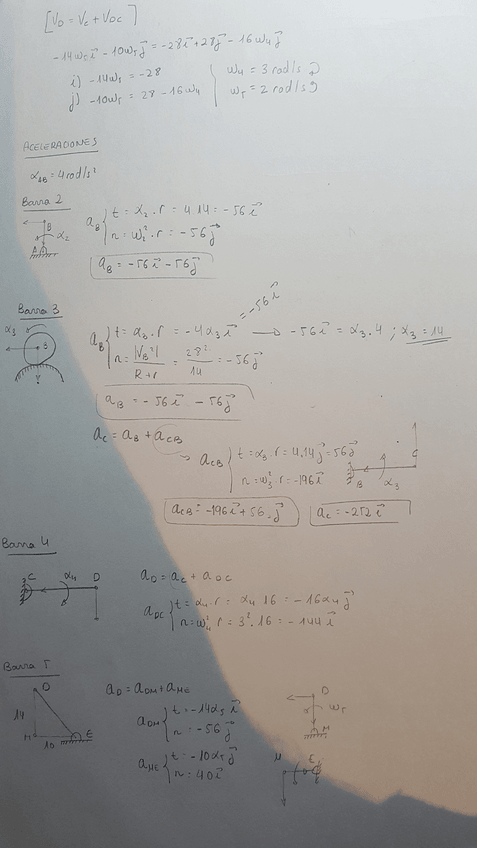 [V_D = V_C + V_DC]
-14ω₅ i⃗ - 10ω₅ j⃗ = -28 i⃗ + 28 j⃗ - 16ω₄ j⃗
i) -14ω₅ = -28
j) -10ω₅ = 28 - 16ω₄
ω₄ = 3 rad/s
ω₅ = 2 rad/s
ACELERACIONES
α_AB = 4 rad/s²
Barra 2
B
α₂
A
a_B
t = α₂ · r = 4·14 = -56 i⃗
n = ω₂² · r = -56 j⃗
a_B = -56 i⃗ - 56 j⃗
Barra 3
α₃
B
a_B
t = α₃ · r = -4α₃ i⃗ → -56 i⃗ = α₃ · 4 ; α₃ = 14
= -56 i⃗
n = |V_B²| / (R + r) = 28² / 14 = -56 j⃗
a_B = -56 i⃗ - 56 j⃗
a_C = a_B + a_CB
a_CB
t = α₃ · r = 4·14 j⃗ = 56 j⃗
n = ω₃² · r = -196 i⃗
B
α₃
C
a_CB = -196 i⃗ + 56 j⃗
a_C = -252 i⃗
Barra 4
C
α₄
D
a_D = a_C + a_DC
a_DC
t = α₄ · r = α₄ · 16 = -16α₄ j⃗
n = ω₄² · r = 3² · 16 = -144 i⃗
Barra 5
D
14
M
10
E
a_D = a_DM + a_ME
a_DM
t = -14α₅ i⃗
n = -56 j⃗
a_ME
t = -10α₅ j⃗
n = 40 i⃗
D
ω₅
M
M
E